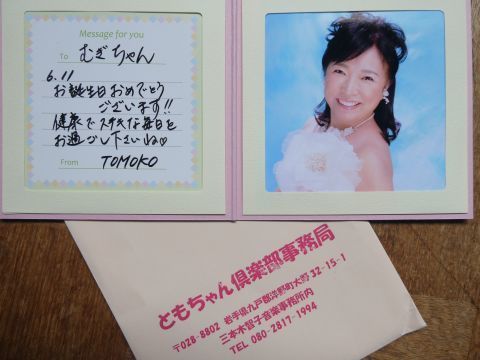 Message for you
To むぎちゃん
6.11
お誕生日おめでとう
ございます!!
健康でステキな毎日を
お過ごし下さいね♡
From TOMOKO
ともちゃん倶楽部事務局
〒028-8802 岩手県九戸郡洋野町大野 32-15-1
三本木智子音楽事務所内
TEL 080-2817-1994